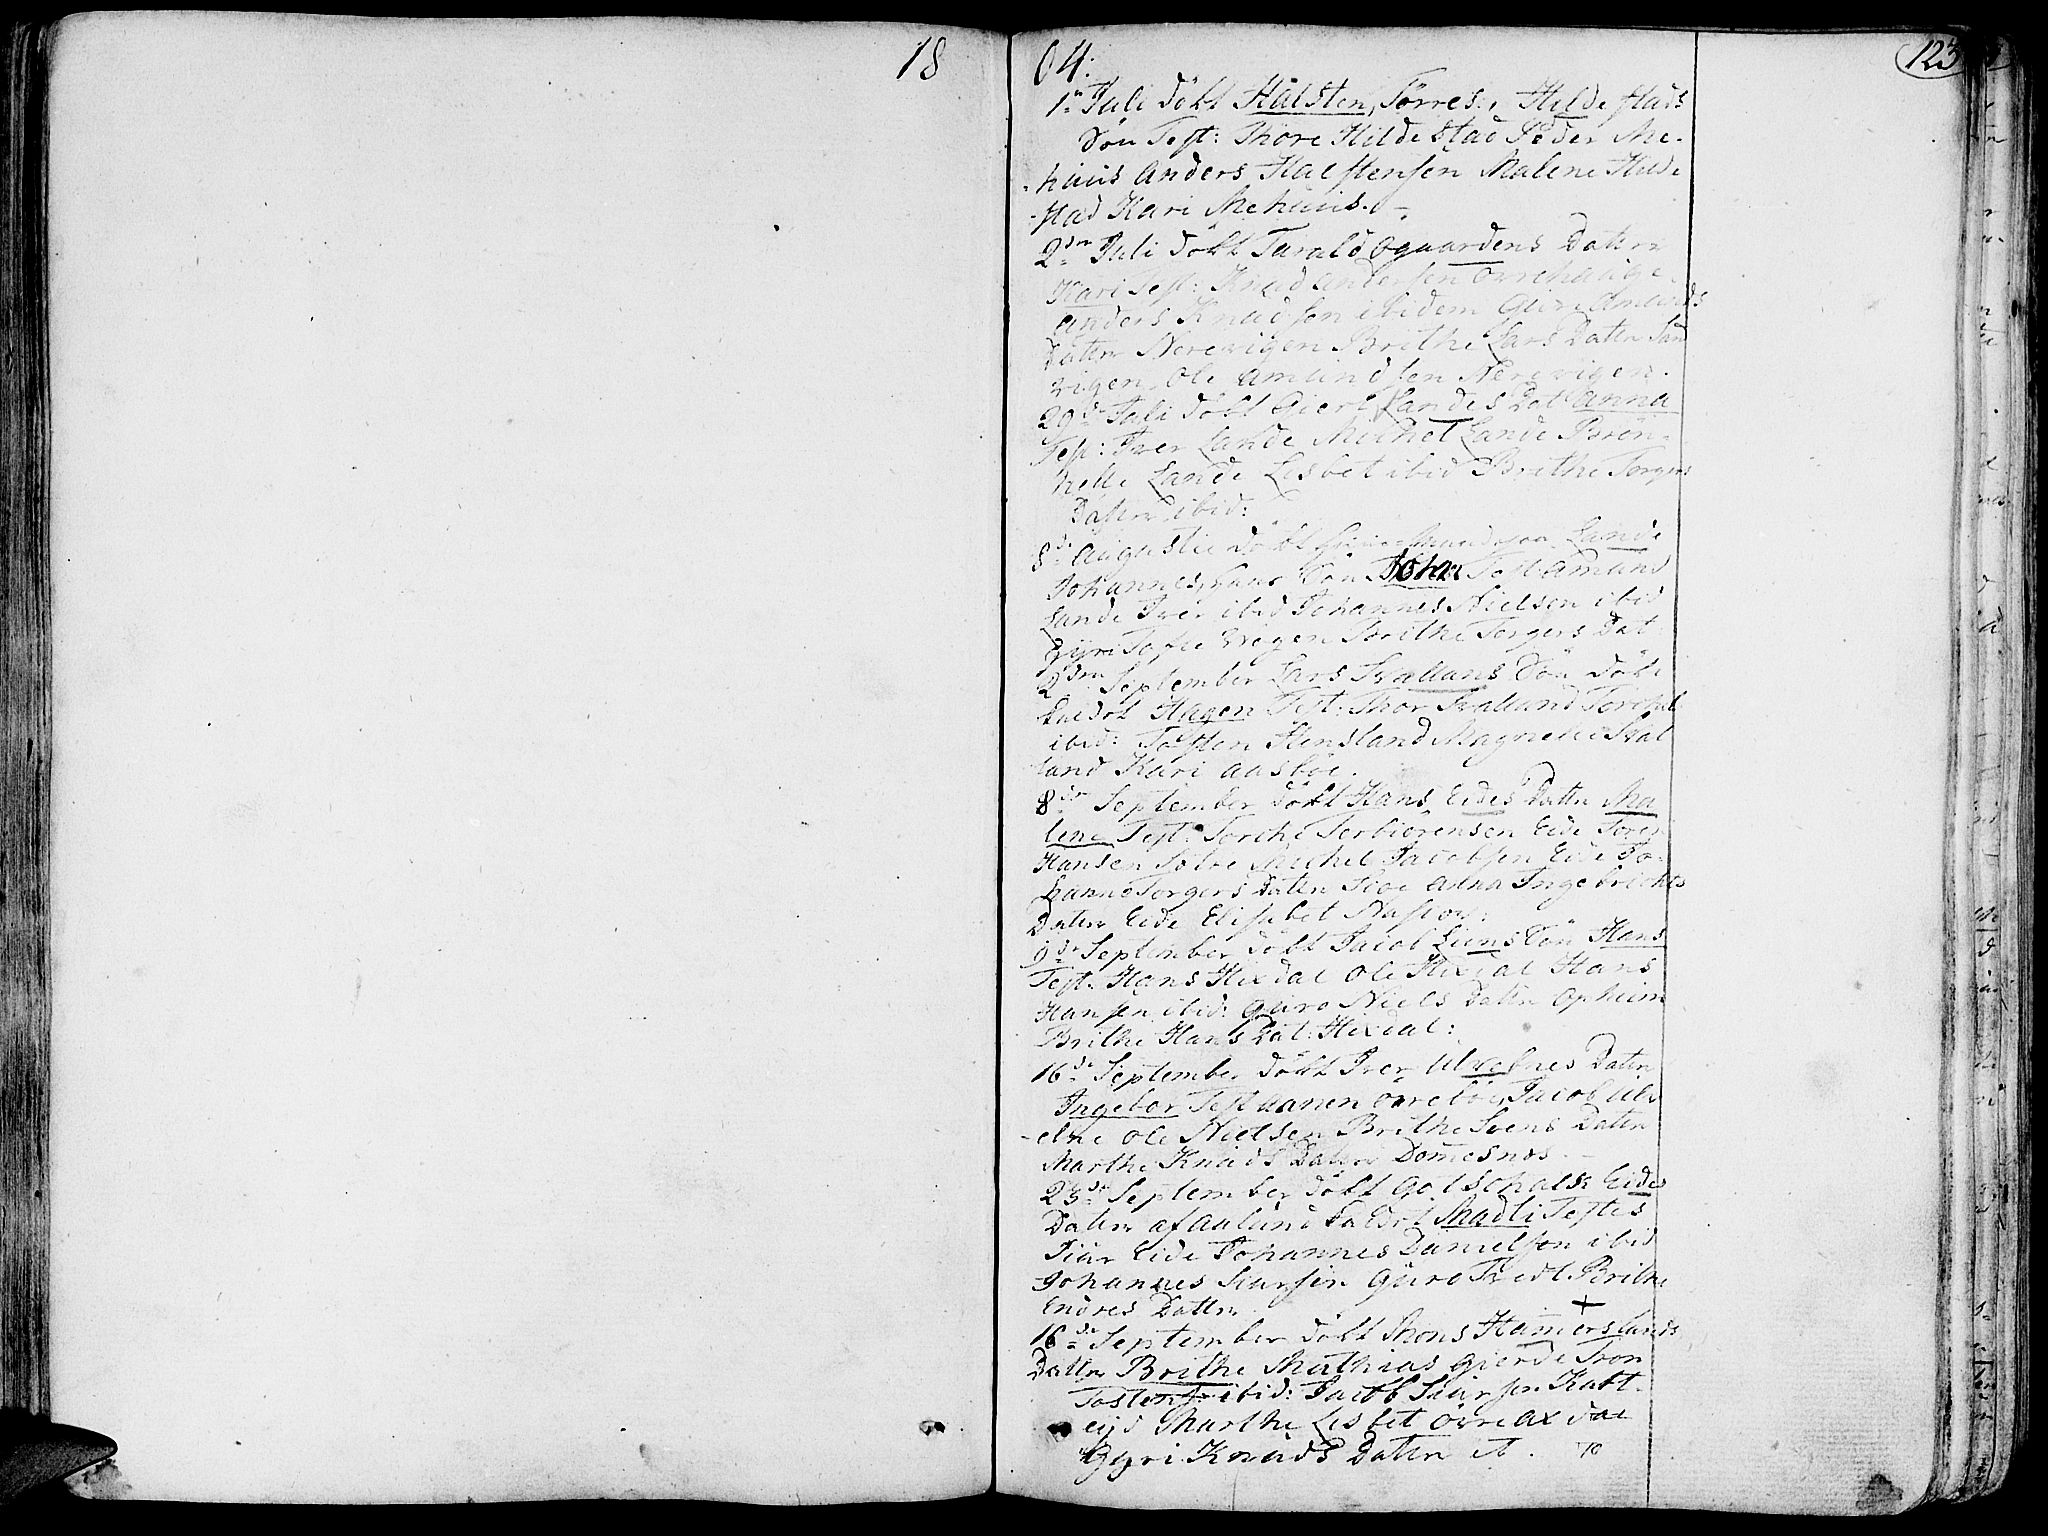 18 04:
123
1n Juli döbt Halsten, Törres Hildestads
Sön Test: Thore Hildestad Peder Me-
huus Anders Halstensen Malene Hilde
stad Kari Mehuus.
2den Juli döbt Tarald Øgaardens Datter
Kari Test: Knud Andersen Øvrehauge
Anders Knudsen ibidem Guri Amunds
Datter Nerevigen Brithe Lars Datter San
vigen Ole Amundsen Nerevigen.
29de Juli döbt Giert Landes Dat Anna
Test: Iver Lande Michel Lande Brön-
helle Lande Lisbet ibid Brithe Torgers
Datter ibid:
8de Augustii döbt Lande
Johannes Sön Johan Test Amund
Lande Iver ibid Johannes Nielsen ibid
Gyri Tofte Brithe Torgers Dat
2den September Lars Svallans Sön döbt
kaldet Hagen Test: Thor Svalland Torchel
ibid: Tosten Stensland Magnele Sval
land Kari Aasböe.
8de September döbt Hans Eides Datter Ma
lene Test: Torche Torbiörensen Eide Tore
Hansen Michel Jacobsen Eide Jo-
hanne Torgers Datter Anna Ingebricts
Datter Eide Elisabet
9de September döbt Jacob Luns Sön Hans
Test: Hans Hixdal Ole Hixdal Hans
Hansen ibid: Guro Niels Datter Opheim
Brithe Hans Dat: Hixdal:
16de September döbt Iver Ulvelnes Datter
Ingebor Test Aanen Øvreböe, Jacob Ulv
elne Ole Nielsen Brithe Svens Datter
Marthe Knuds Datter Domesnos
23de September döbt Gotschalk Eides
Datter af Aalund kaldet Madli Testes
Siur Eide Johannes Danielsen ibid
Johannes Siursen Guro Tvedt Brithe
Endres Datter
16de September döbt Mons Hamerslands
Datter Brithe Mathias Gierde Tron
Tostens ibid: Jacob Siursen Katt-
eijd Marthe Lisbet Øvre Axdal
Gyri Knuds Datter